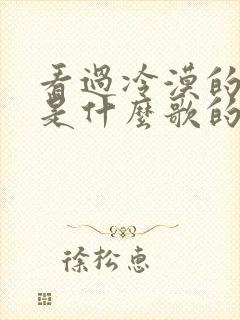 看過冷漠的
是什麼歌的
徐松惠